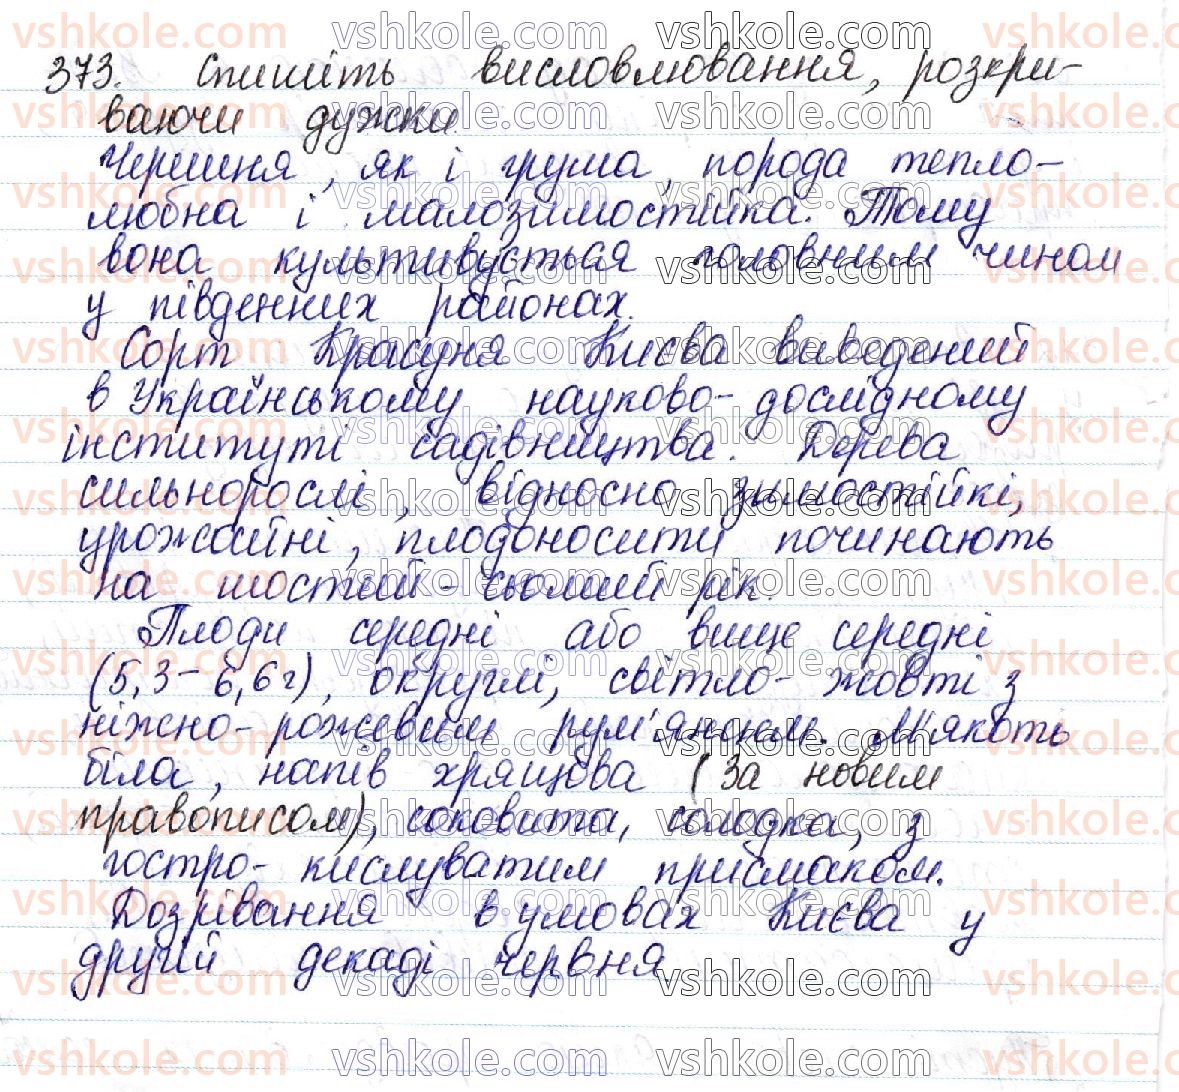 373. Спишіть висловлювання, розкри-
ваючи дужки.
Черешня, як і груша, порода тепло-
любна і малозимостійка. Тому
вона культивується головним чином
у південних районах.
Сорт Красуня Києва виведений
в Українському науково-дослідному
інституті садівництва. Дерева
сильнорослі, відносно зимостійкі,
урожайні, плодоносити починають
на шостий-сьомий рік.
Плоди середні або вище середні
(5,3-6,6г), округлі, світло-жовті з
ніжно-рожевим рум'янцем. М'якоть
біла, напів хрящова (за новим
правописом), соковита, солодка, з
гостро-кислуватим присмаком.
Дозрівання в умовах Києва у
другій декаді червня.